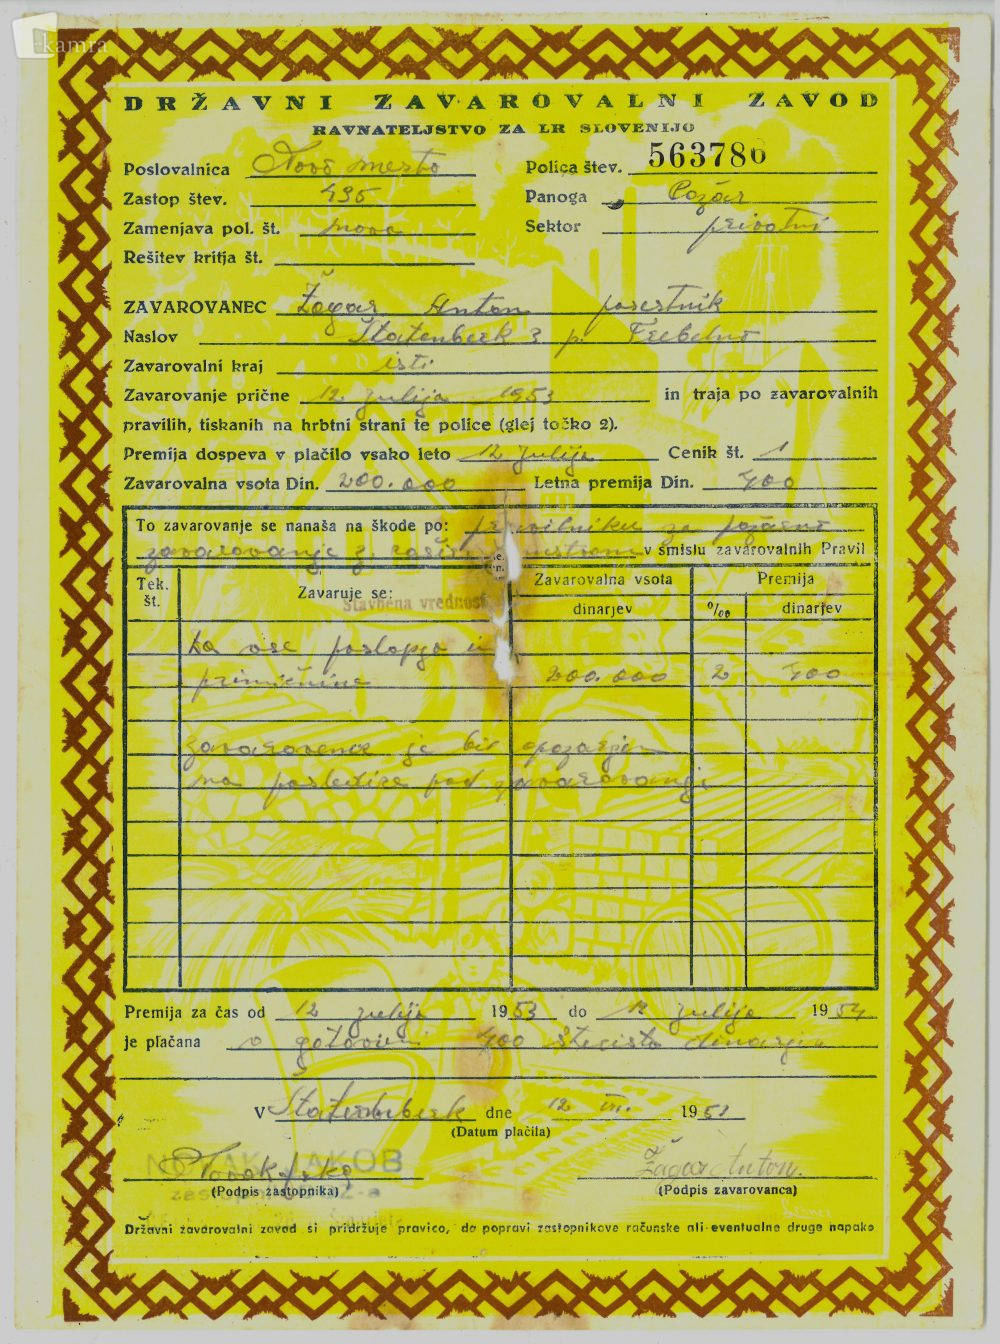 kamra
DRŽAVNI ZAVAROVALNI ZAVOD
RAVNATELJSTVO ZA LR SLOVENIJO
Poslovalnica Novo mesto Polica štev. 563786
Zastop štev. 495 Panoga Požar
Zamenjava pol. št. nova Sektor privatni
Rešitev kritja št.
ZAVAROVANEC Žagar Anton posestnik
Naslov Štatenberk 3 p. Trebelno
Zavarovalni kraj isti
Zavarovanje prične 12 julija 1953 in traja po zavarovalnih
pravilih, tiskanih na hrbtni strani te police (glej točko 2).
Premija dospeva v plačilo vsako leto 12 julija Cenik št. 1
Zavarovalna vsota Din. 200.000 Letna premija Din. 400
To zavarovanje se nanaša na škode po: pravilniku za požarno
zavarovanje z v smislu zavarovalnih Pravil
Tek. št. Zavaruje se: Zavarovalna vsota Premija
Stavbena vrednost dinarjev ‰ dinarjev
Za vse poslopja in
premičnine 200.000 2 400
Zavarovanec je bil opozorjen
na posledice pod zavarovanja
Premija za čas od 12 julija 1953 do 12 julija 1954
je plačana v gotovini 400 štiristo dinarjev
V Štatenberk dne 12 VII. 1953
(Datum plačila)
NOVAK JAKOB
Novak Žagar Anton.
(Podpis zastopnika) (Podpis zavarovanca)
Državni zavarovalni zavod si pridržuje pravico, da popravi zastopnikove računske ali eventualne druge napake